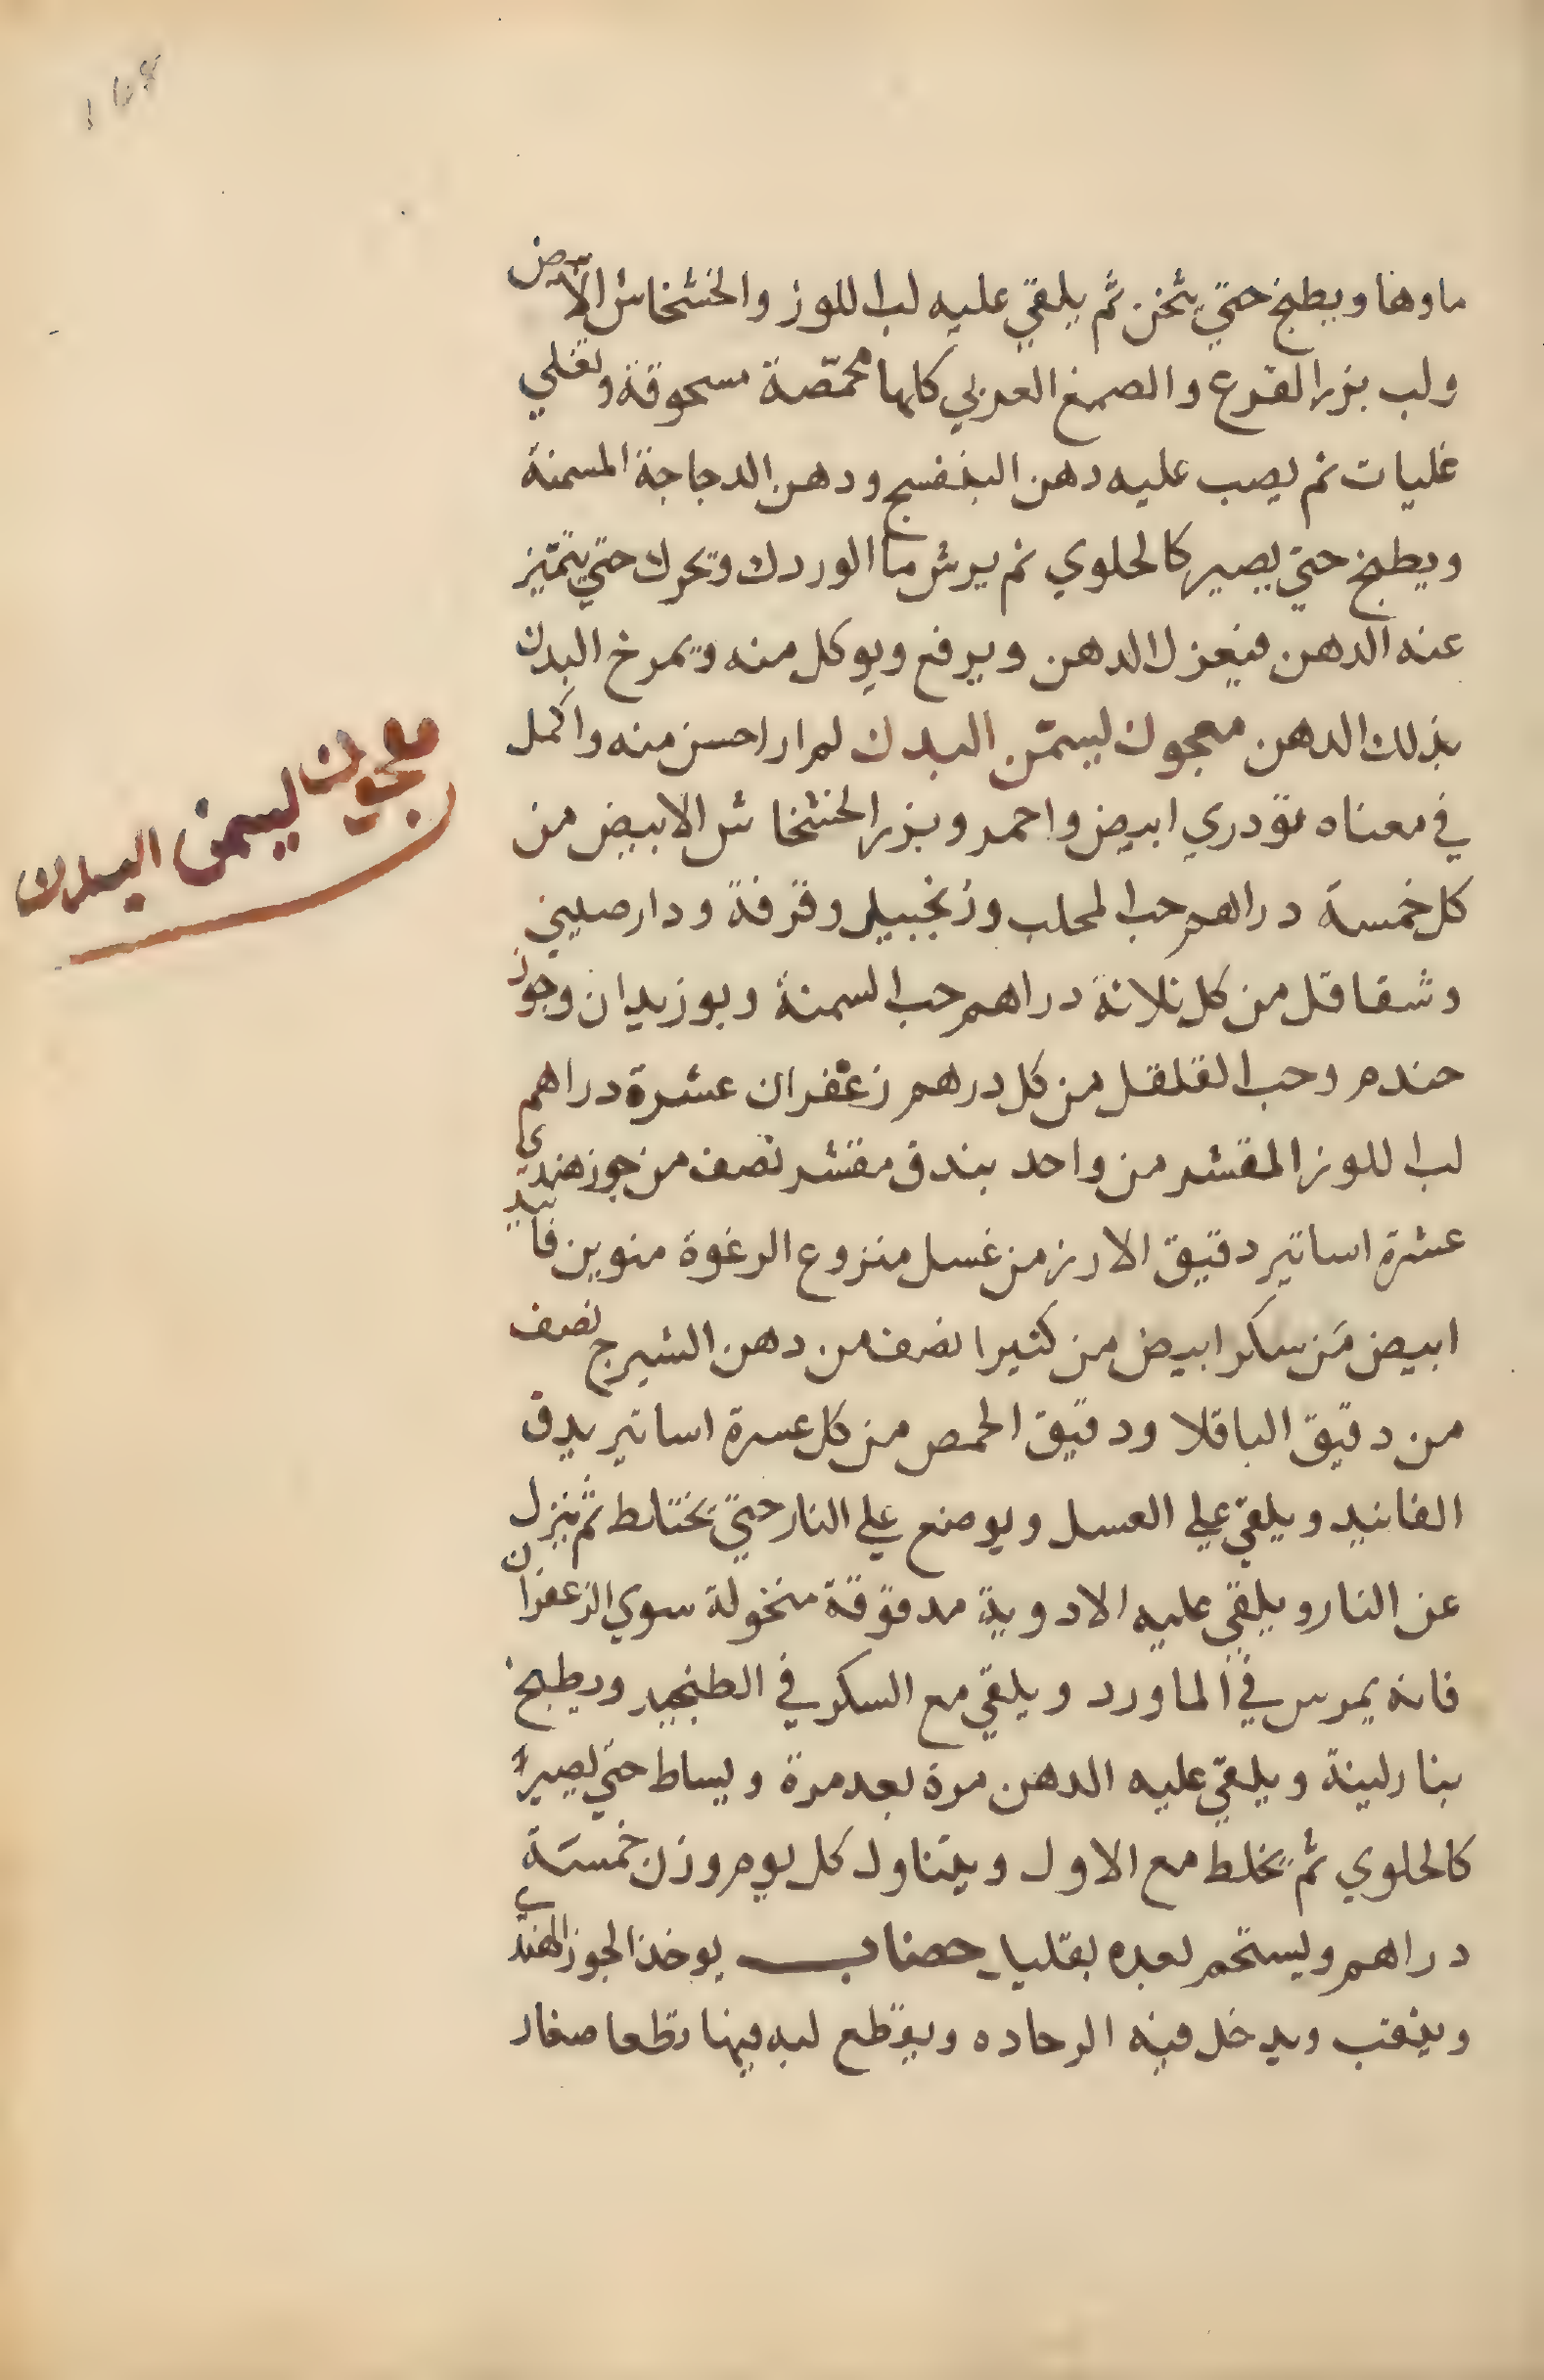 ماوها ويطبخ حتي يثخن ثم يلقي عليه لب اللوز والخشخاش الابيض
ولب بزر القرع والصمغ العربي كلها محمّصة مسحوقة وتغلي
غليات ثم يصب عليه دهن البنفسج ودهن الدجاجة المسمنة
ويطبخ حتي يصير كالحلوي ثم يرش ما الوردك وتحرك حتي يتميّز
عنه الدهن فيعزل الدهن ويرفع ويوكل منه ويمرخ البدن
بذلك الدهن معجون ليسمّن البدن لم ار احسن منه واكمل
في معناه تودري ابيض واحمر وبزر الخشخاش الابيض من
كل خمسة دراهم حب المحلب وزنجبيل وقرفة ودارصيني
وشقاقل من كل ثلاثة دراهم حب السمنة وبوزيدان وجوز
جندم وحب القلقل من كل درهم زعفران عشرة دراهم
لب اللوز المقشر من واحد بندق مقشر نصف من جوز هندي
عشرة اساتير دقيق الارز من غسل منزوع الرغوة منوين فانيد
ابيض مَن سكر ابيض من كثيرا نصف من دهن الشيرج نصف
من دقيق الباقلا ودقيق الحمص من كل عسرة اساتير يدق
الفانيد ويلقي علي العسل ويوضع علي النار حتي يختلط ثم ينزل
عن النار ويلقي عليه الادوية مدقوقة منخولة سوي الزعفران
فانه يمرس في الماورد ويلقي مع السكر في الطنجير ويطبخ
بنار لينة ويلقي عليه الدهن مرة بعد مرة ويساط حتي يصير
كالحلوي ثم يخلط مع الاول ويتناول كل يوم وزن خمسة
دراهم ويستحم بعده بقليل خضاب يوخذ الجوز الهندي
وينقب ويدخل فيه الرحاده ويقطع لبه فيها قطعا صغار
معجون ليسمن البدن